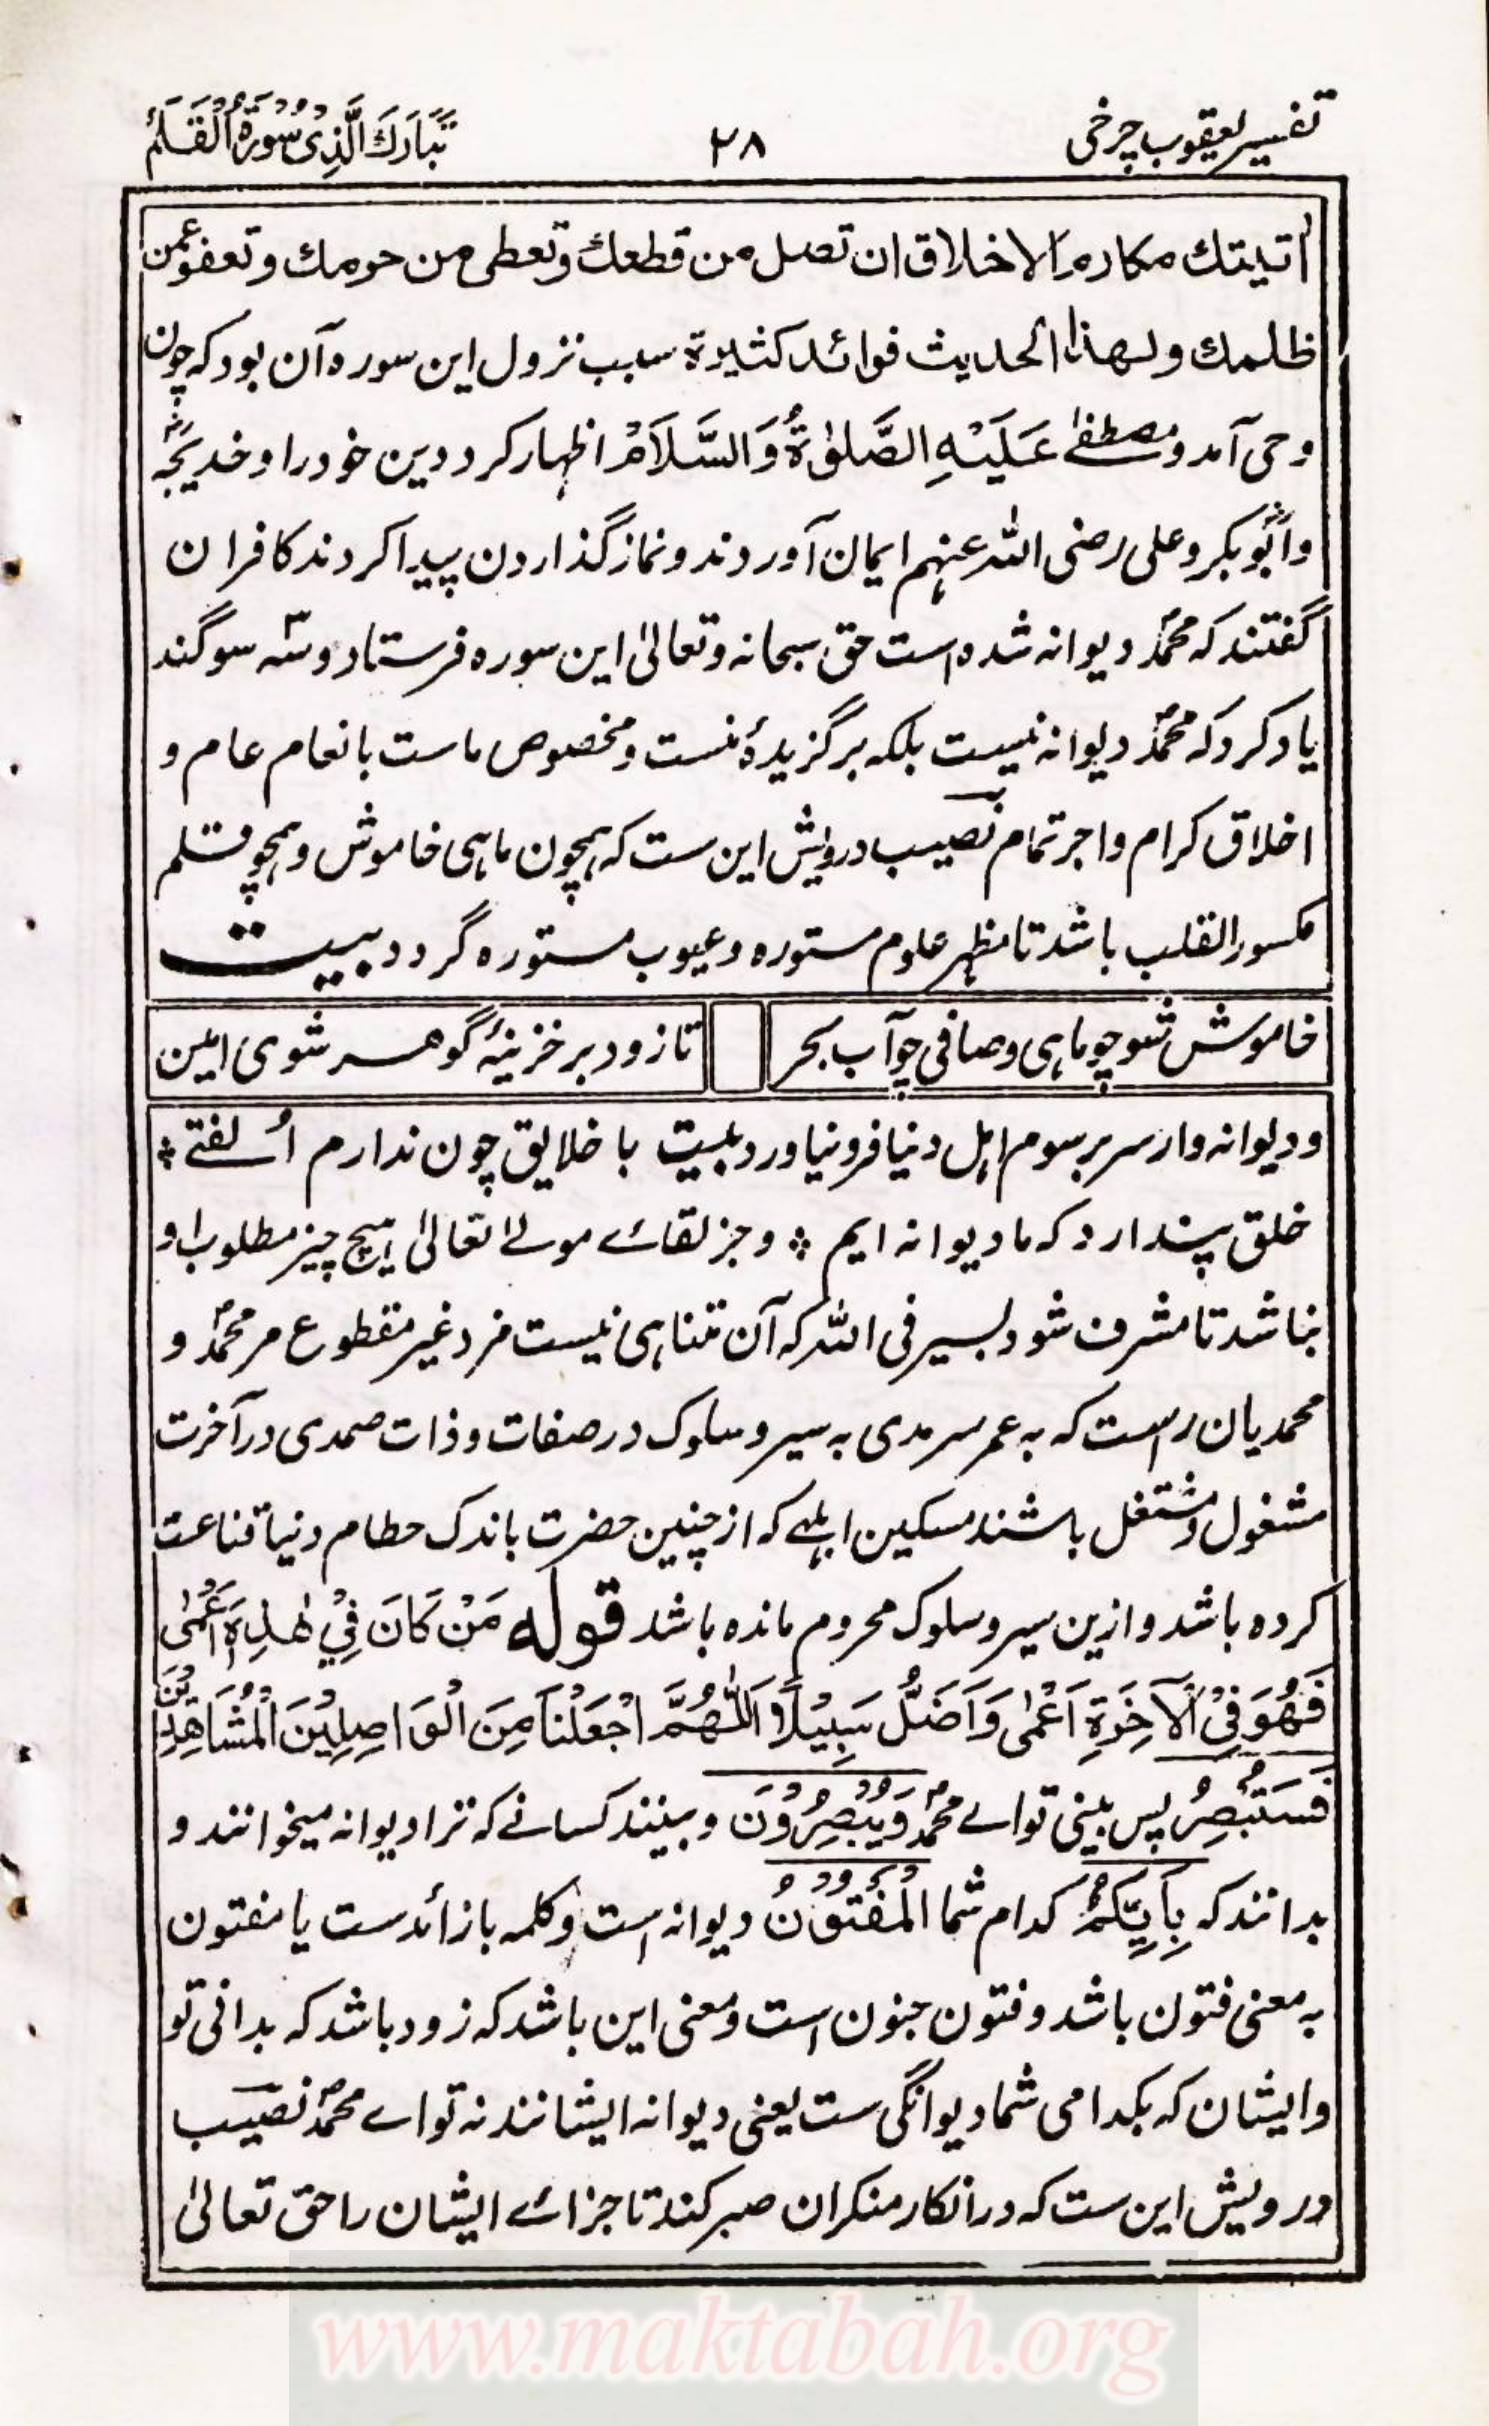 تفسیر یعقوب چرخی ۲۸ تَبَارَكَ الَّذِیْ سُوْرَةُ الْقَلَمْ
اتیتك مكارم الاخلاق ان تصل من قطعك وتعطی من حرمك وتعفو عمن
ظلمك ولهذا الحدیث فوائد كثیرة سبب نزول این سوره آن بود که چون
وحی آمد و مصطفےٰ عَلَیْہِ الصَّلوٰۃُ وَالسَّلَامُ اظہار کرد دین خود را و خدیجہؓ
و ابوؓبکر و علی رضی اللہ عنہم ایمان آوردند و نماز گذاردن پیدا کردند کافران
گفتند کہ محمدؐ دیوانہ شدہ است حق سبحانہ وتعالیٰ این سورہ فرستاد و سہ سوگند
یاد کرد کہ محمدؐ دیوانہ نیست بلکہ برگزیدۂ منست و مخصوص ماست بانعام عام و
اخلاق کرام و اجر تمام نصیب درویش این ست کہ ہمچون ماہی خاموش و ہمچو قلم
مکسور القلب باشد تا مظہر علوم مستورہ و عیوب مستورہ گردد بیت
خاموش شو چو ماہی و صافی چو آب بحر تا زود بر خزینۂ گوہر شوی امین
و دیوانہ وار سر برسوم اہل دنیا فرو نیاورد بیت با خلایق چون ندارم اُلفتے ؞
خلق پندارد کہ ما دیوانہ ایم ؞ و جز لقاے مولےٰ تعالیٰ ہیچ چیز مطلوب او
نباشد تا مشرف شود بسیر فی اللہ کہ آن متناہی نیست مزد غیر مقطوع مر محمدؐ و
محمدیان راست کہ بہ عمر سرمدی بہ سیر و سلوک در صفات و ذات صمدی در آخرت
مشغول و مشتغل باشند مسکین ابلہے کہ از چنین حضرت باندک حطام دنیا قناعت
کردہ باشد و ازین سیر و سلوک محروم ماندہ باشد قولہ مَنْ كَانَ فِیْ هٰذِهٖۤ اَعْمٰی
فَهُوَ فِی الْاٰخِرَةِ اَعْمٰی وَاَضَلُّ سَبِیْلًا اَللّٰهُمَّ اجْعَلْنَا مِنَ الْوَاصِلِیْنَ الْمُشَاهِدِیْنَ
فَسَتُبْصِرُ پس بینی تو اے محمدؐ وَیُبْصِرُوْنَ و بینند کسانے کہ ترا دیوانہ میخوانند و
بدانند کہ بِاَیِّكُمُ کدام شما الْمَفْتُوْنُ دیوانہ است و کلمہ با زائدست یا مفتون
بہ معنی فتون باشد و فتون جنون است و معنی این باشد کہ زود باشد کہ بدانی تو
و ایشان کہ بکدامی شما دیوانگی ست یعنی دیوانہ ایشانند نہ تو اے محمدؐ نصیب
درویش این ست کہ در انکار منکران صبر کند تا جزاے ایشان را حق تعالیٰ
www.maktabah.org